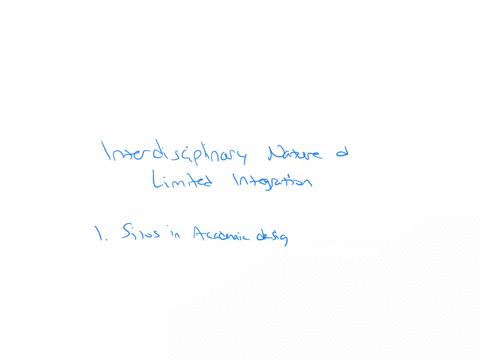 Interdisciplinary Nature d
Limited Integration
1. Silos in Academic desig